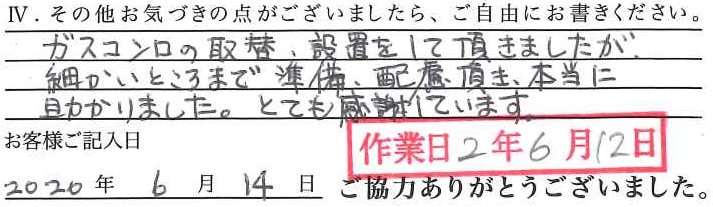 Ⅳ．その他お気づきの点がございましたら、ご自由にお書きください。
ガスコンロの取替、設置をして頂きましたが、
細かいところまで準備、配慮頂き、本当に
助かりました。とても感謝しています。
お客様ご記入日
作業日2年6月12日
2020年 6月14日 ご協力ありがとうございました。